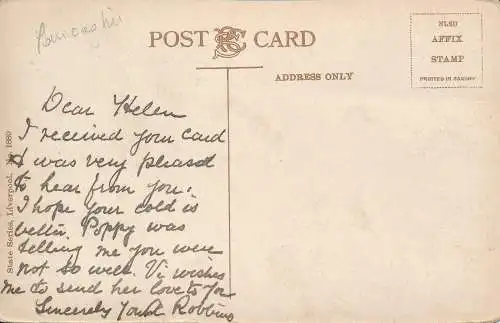 POST CARD
ADDRESS ONLY
AFFIX
STAMP
PRINTED IN SAXONY
State Series, Liverpool. No. 1880
Dear Helen
I received your card
& was very pleasd
to hear from you.
I hope your cold is
better. Poppy was
telling me you were
not so well. Vi wishes
me to send her love to you
Sincerely Yours Robbins